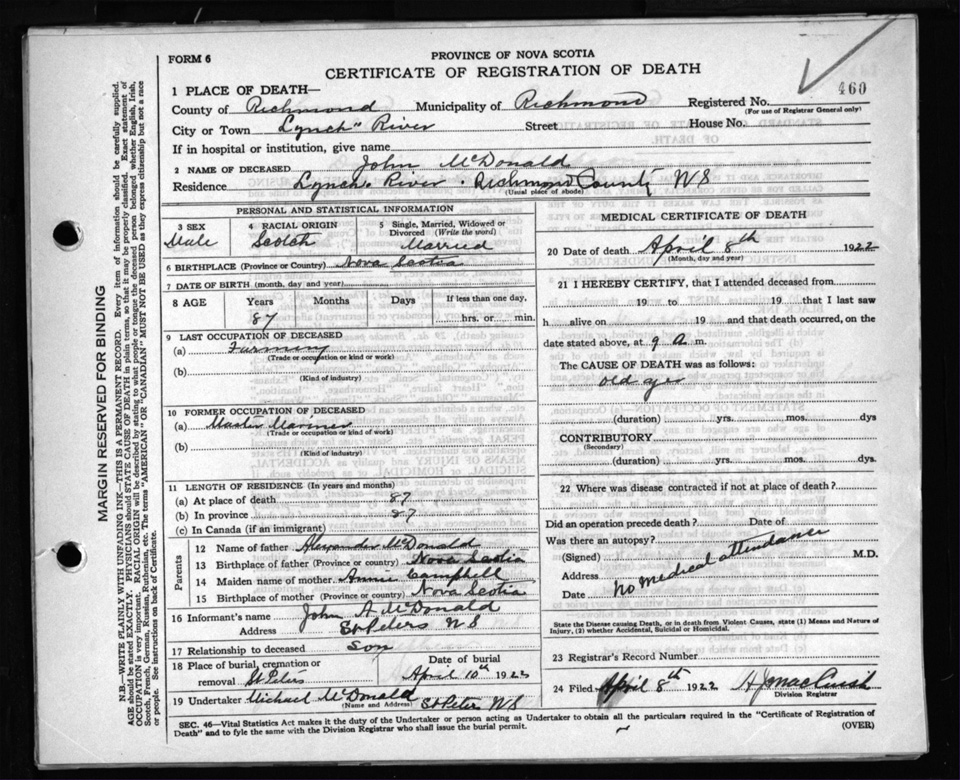 FORM 6
PROVINCE OF NOVA SCOTIA
CERTIFICATE OF REGISTRATION OF DEATH
460
1 PLACE OF DEATH—
County of Richmond Municipality of Richmond Registered No.
(For use of Registrar General only)
City or Town Lynch" River Street House No.
If in hospital or institution, give name
2 NAME OF DECEASED John McDonald
Residence Lynch. River. Richmond County NS
(Usual place of abode)
PERSONAL AND STATISTICAL INFORMATION
3 SEX 4 RACIAL ORIGIN 5 Single, Married, Widowed or
Divorced (Write the word)
Male Scotch Married
6 BIRTHPLACE (Province or Country) Nova Scotia
7 DATE OF BIRTH (month, day and year)
8 AGE Years Months Days If less than one day,
87 hrs. or min.
9 LAST OCCUPATION OF DECEASED
(a) Farming
(Trade or occupation or kind of work)
(b)
(Kind of industry)
10 FORMER OCCUPATION OF DECEASED
(a) Master Mariner
(Trade or occupation or kind of work)
(b)
(Kind of industry)
11 LENGTH OF RESIDENCE (In years and months)
(a) At place of death 87
(b) In province 87
(c) In Canada (if an immigrant)
Parents
12 Name of father Alexander McDonald
13 Birthplace of father (Province or country) Nova Scotia
14 Maiden name of mother Annie Campbell
15 Birthplace of mother (Province or country) Nova Scotia
16 Informant's name John A McDonald
Address St Peters NS
17 Relationship to deceased Son
18 Place of burial, cremation or Date of burial
removal St Peters April 10th 1923
19 Undertaker Michael McDonald St Peters NS
(Name and Address)
MEDICAL CERTIFICATE OF DEATH
20 Date of death April 8th 1922
(Month, day and year)
21 I HEREBY CERTIFY, that I attended deceased from
19 to 19 that I last saw
h alive on 19 and that death occurred, on the
date stated above, at 9 A. m.
The CAUSE OF DEATH was as follows:
old age
(duration) yrs. mos. dys
CONTRIBUTORY
(Secondary)
(duration) yrs. mos. dys.
22 Where was disease contracted if not at place of death?
Did an operation precede death? Date of
Was there an autopsy?
(Signed) M.D.
Address
Date
no medical attendance
State the Disease causing Death, or in death from Violent Causes, state (1) Means and Nature of
Injury, (2) whether Accidental, Suicidal or Homicidal.
23 Registrar's Record Number
24 Filed April 8th 1922
Division Registrar
SEC. 46—Vital Statistics Act makes it the duty of the Undertaker or person acting as Undertaker to obtain all the particulars required in the "Certificate of Registration of
Death" and to fyle the same with the Division Registrar who shall issue the burial permit. (OVER)
MARGIN RESERVED FOR BINDING
N.B.—WRITE PLAINLY WITH UNFADING INK—THIS IS A PERMANENT RECORD. Every item of information should be carefully supplied.
AGE should be stated EXACTLY. PHYSICIANS should STATE CAUSE OF DEATH in plain terms, so that it may be properly classified. Exact statement of
OCCUPATION is very important. RACIAL ORIGIN will be described by stating to what people or tongue the deceased person belonged whether English, Irish,
Scotch, French, German, Russian, Ruthenian, etc. The terms "AMERICAN" OR "CANADIAN" MUST NOT BE USED as they express citizenship but not a race
or people. See instructions on back of Certificate.